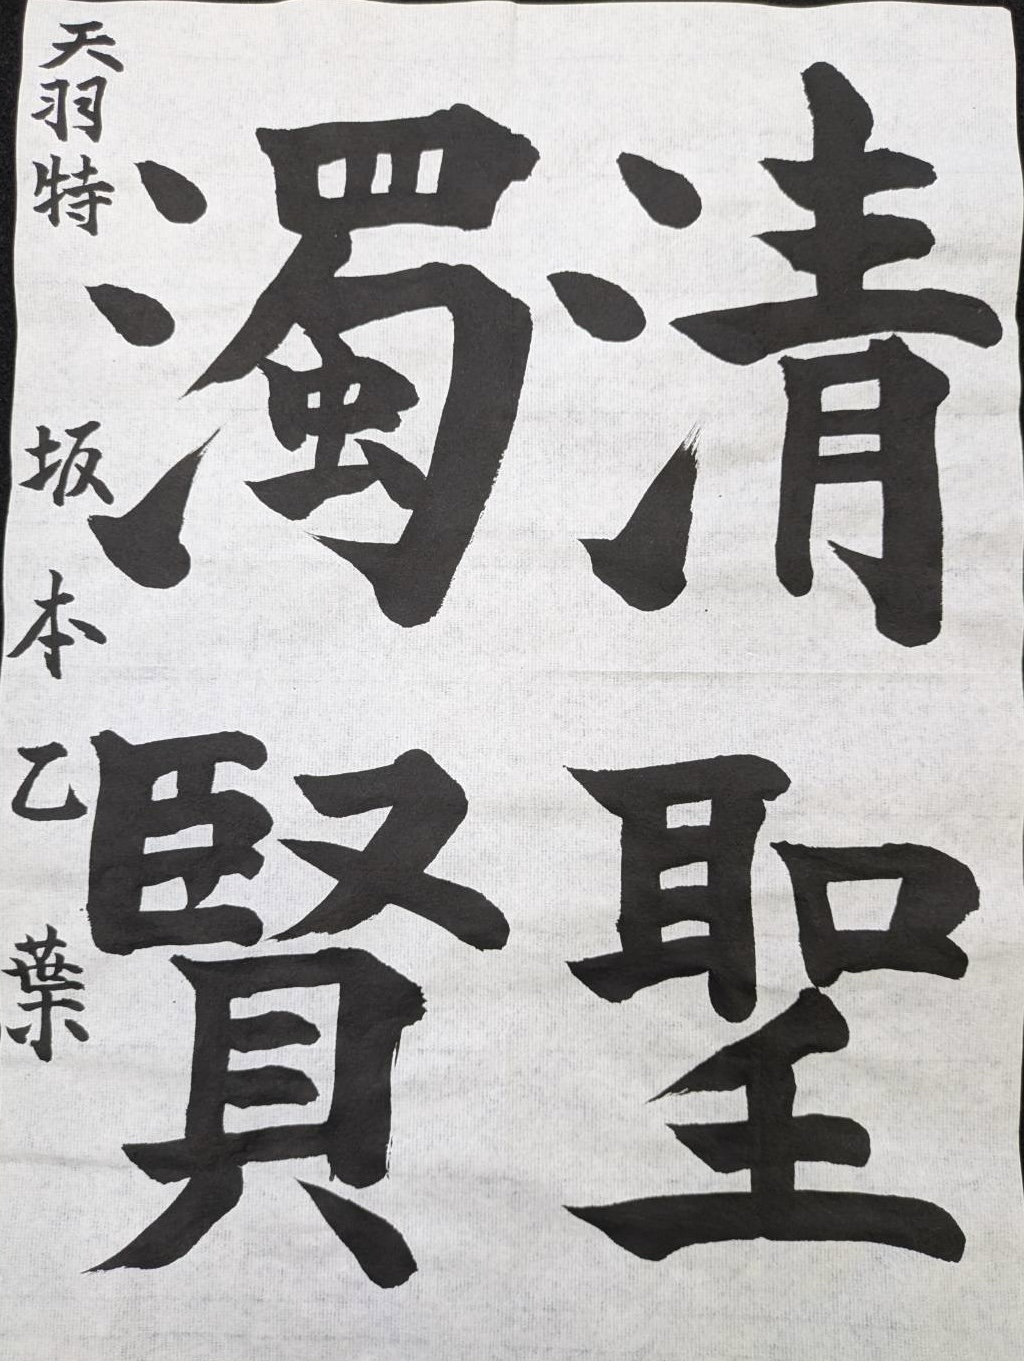 清聖
濁賢
天羽特 坂本乙葉